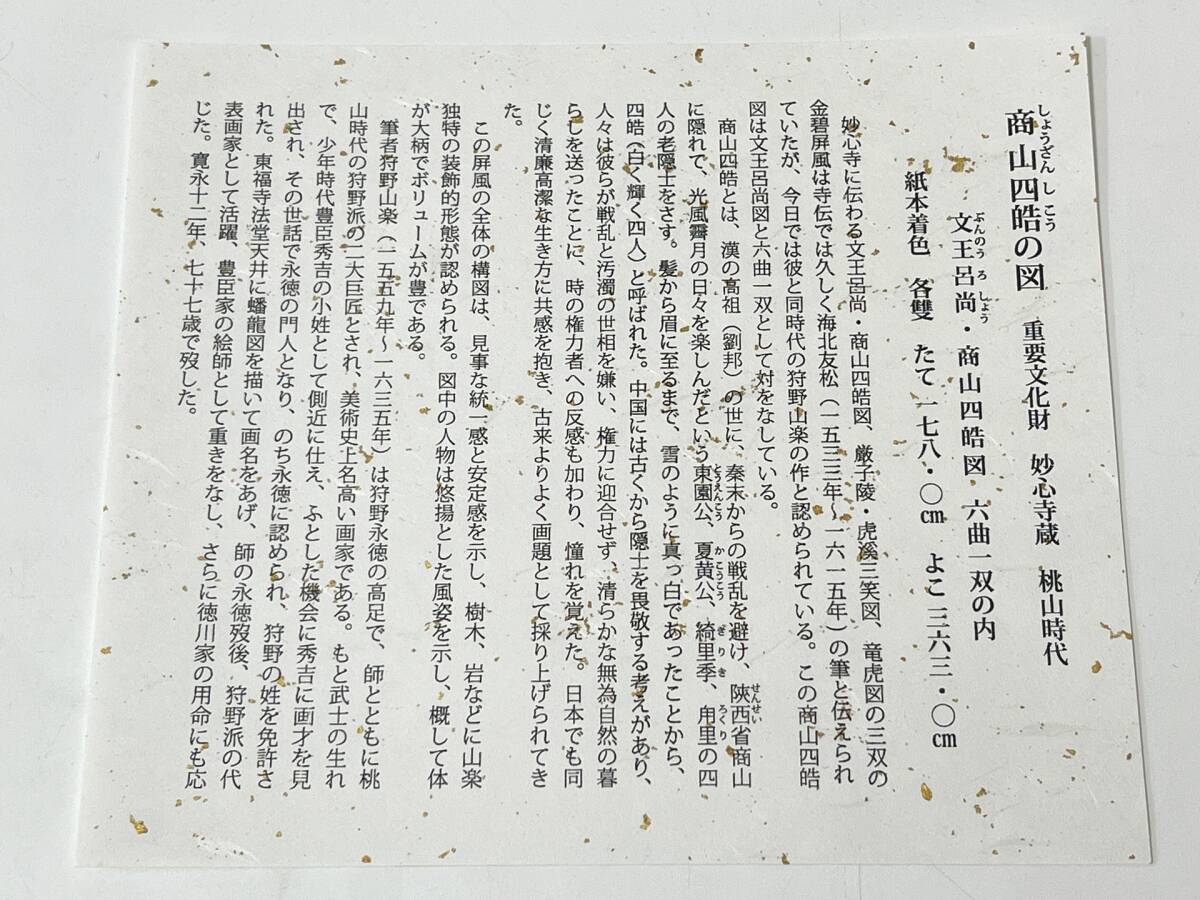 商山四皓の図　重要文化財　妙心寺蔵　桃山時代
文王呂尚・商山四皓図　六曲一双の内
紙本着色　各雙　たて一七八・〇㎝　よこ三六三・〇㎝
妙心寺に伝わる文王呂尚・商山四皓図、厳子陵・虎溪三笑図、竜虎図の三双の
金碧屏風は寺伝では久しく海北友松（一五三三年〜一六一五年）の筆と伝えられ
ていたが、今日では彼と同時代の狩野山楽の作と認められている。この商山四皓
図は文王呂尚図と六曲一双として対をなしている。
商山四皓とは、漢の高祖（劉邦）の世に、秦末からの戦乱を避け、陝西省商山
に隠れて、光風霽月の日々を楽しんだという東園公、夏黄公、綺里季、甪里の四
人の老隠士をさす。髪から眉に至るまで、雪のように真っ白であったことから、
四皓（白く輝く四人）と呼ばれた。中国には古くから隠士を畏敬する考えがあり、
人々は彼らが戦乱と汚濁の世相を嫌い、権力に迎合せず、清らかな無為自然の暮
らしを送ったことに、時の権力者への反感も加わり、憧れを覚えた。日本でも同
じく清廉高潔な生き方に共感を抱き、古来よりよく画題として採り上げられてき
た。
この屏風の全体の構図は、見事な統一感と安定感を示し、樹木、岩などに山楽
独特の装飾的形態が認められる。図中の人物は悠揚とした風姿を示し、概して体
が大柄でボリュームが豊である。
筆者狩野山楽（一五五九年〜一六三五年）は狩野永徳の高足で、師とともに桃
山時代の狩野派の二大巨匠とされ、美術史上名高い画家である。もと武士の生れ
で、少年時代豊臣秀吉の小姓として側近に仕え、ふとした機会に秀吉に画才を見
出され、その世話で永徳の門人となり、のち永徳に認められ、狩野の姓を免許さ
れた。東福寺法堂天井に蟠龍図を描いて画名をあげ、師の永徳歿後、狩野派の代
表画家として活躍、豊臣家の絵師として重きをなし、さらに徳川家の用命にも応
じた。寛永十二年、七十七歳で歿した。